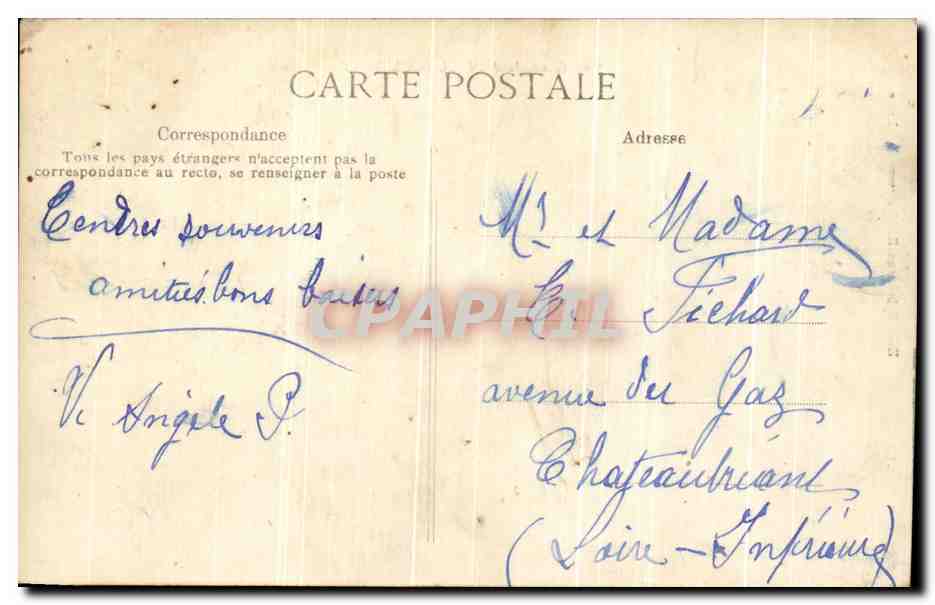 CARTE POSTALE
Correspondance
Tous les pays étrangers n'acceptent pas la
correspondance au recto, se renseigner à la poste
Tendres souvenirs
amitiés bons baisers
Angèle P.
Adresse
Mr et Madame
Fichard
avenue du Gaz
Chateaubriant
(Loire-Inférieure)
CPAPHIL